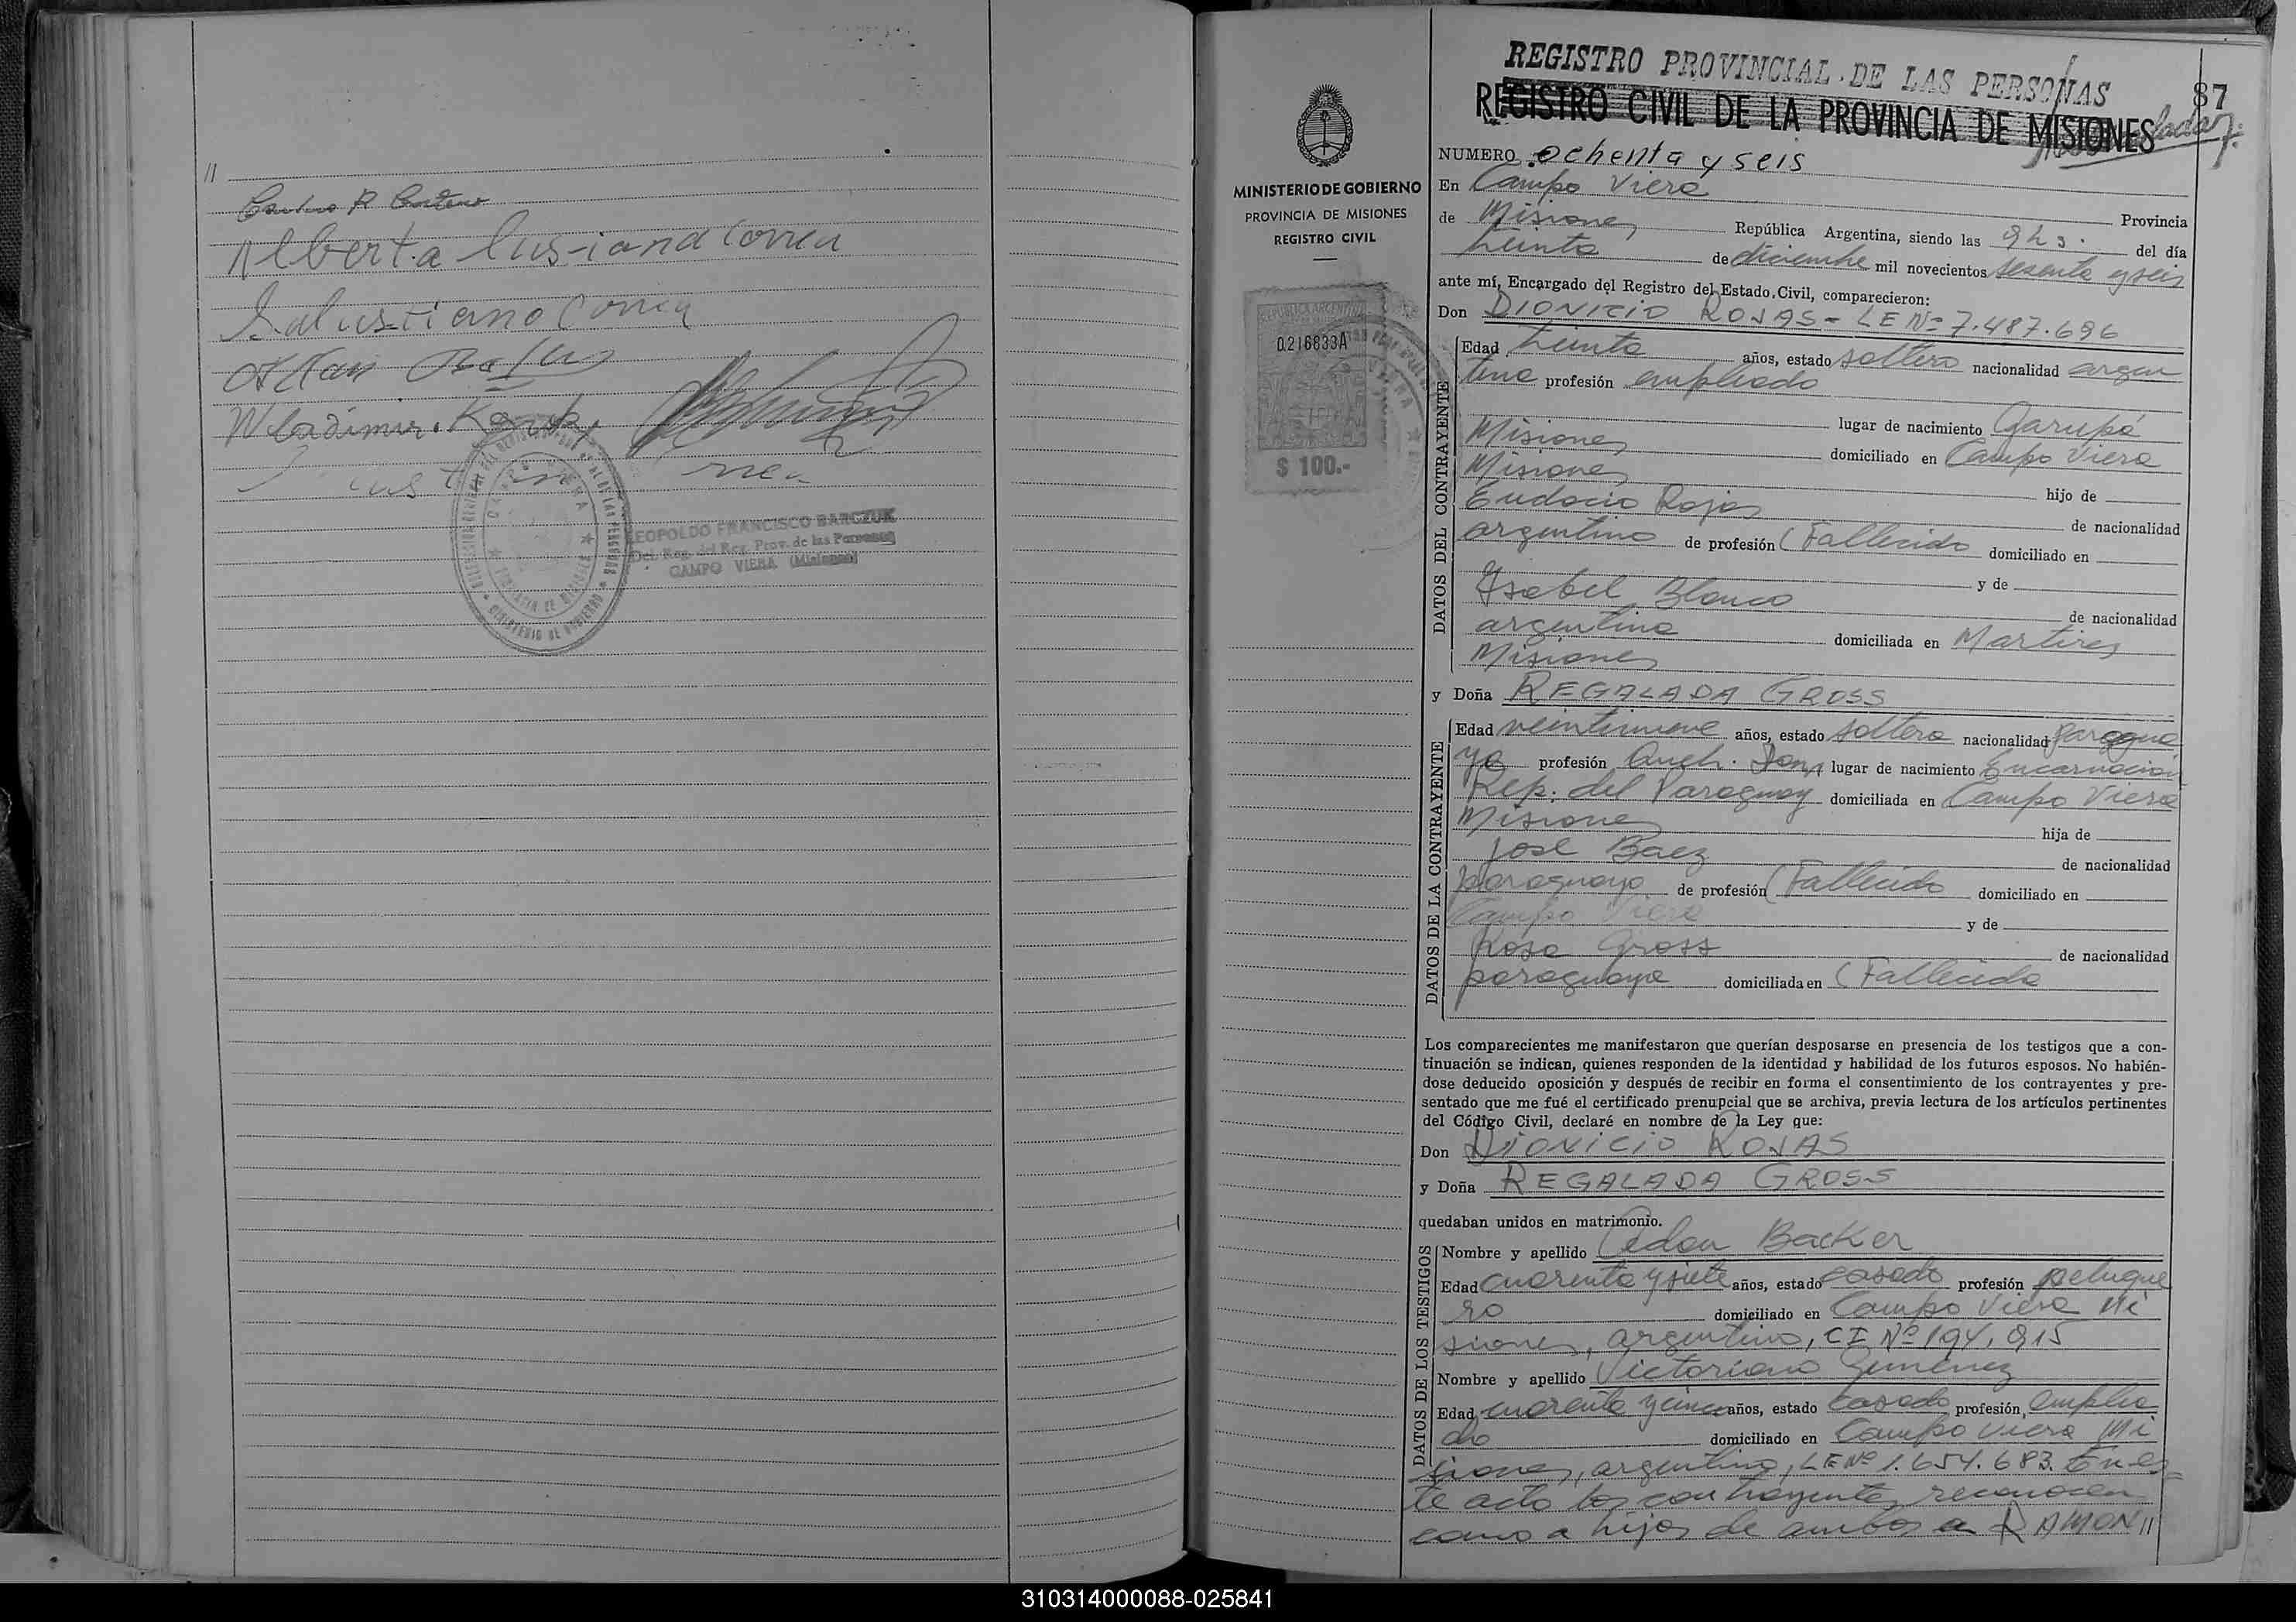 //
Alberta Lusiana Correa
Salustiano Correa
Wladimir
LEOPOLDO FRANCISCO BARCZUK
Del. Reg. del Reg. Prov. de las Personas
CAMPO VIERA (Misiones)
MINISTERIO DE GOBIERNO
PROVINCIA DE MISIONES
REGISTRO CIVIL
REPUBLICA ARGENTINA
0.216833A
$ 100.-
REGISTRO PROVINCIAL DE LAS PERSONAS
87
REGISTRO CIVIL DE LA PROVINCIA DE MISIONES
NUMERO ochenta y seis
En Campo Viera
Provincia
de Misiones República Argentina, siendo las 9 hs. del día
treinta de diciembre mil novecientos sesenta y seis
ante mí, Encargado del Registro del Estado Civil, comparecieron:
Don DIONICIO ROJAS - LE Nº 7.487.696
DATOS DEL CONTRAYENTE
Edad treinta años, estado soltero nacionalidad argen
tina profesión empleado
lugar de nacimiento Garupá
Misiones domiciliado en Campo Viera
Misiones hijo de
Eudocio Rojas de nacionalidad
argentino de profesión (Fallecido domiciliado en
y de
Ysabel Blanco de nacionalidad
argentina domiciliada en Martires
Misiones
y Doña REGALADA GROSS
DATOS DE LA CONTRAYENTE
Edad veintinueve años, estado soltera nacionalidad paragua
ya profesión lugar de nacimiento Encarnación
Rep. del Paraguay domiciliada en Campo Viera
Misiones hija de
José Baez de nacionalidad
paraguayo de profesión (Fallecido domiciliado en
Campo Viera y de
Rosa Gross de nacionalidad
paraguaya domiciliada en (Fallecida
Los comparecientes me manifestaron que querían desposarse en presencia de los testigos que a con-
tinuación se indican, quienes responden de la identidad y habilidad de los futuros esposos. No habién-
dose deducido oposición y después de recibir en forma el consentimiento de los contrayentes y pre-
sentado que me fué el certificado prenupcial que se archiva, previa lectura de los artículos pertinentes
del Código Civil, declaré en nombre de la Ley que:
Don DIONICIO ROJAS
y Doña REGALADA GROSS
quedaban unidos en matrimonio.
DATOS DE LOS TESTIGOS
Nombre y apellido Adan Backer
Edad cuarenta y siete años, estado casado profesión peluque
ro domiciliado en Campo Viera Mi
siones, argentino, CI Nº 194.915
Nombre y apellido Victoriano Gimenez
Edad cuarenta y cinco años, estado casado profesión, emplea
do domiciliado en Campo Viera Mi
siones, argentino, LE Nº 1.654.683. En es=
te acto los contrayentes reconocen
como a hijos de ambos a RAMON //
310314000088-025841